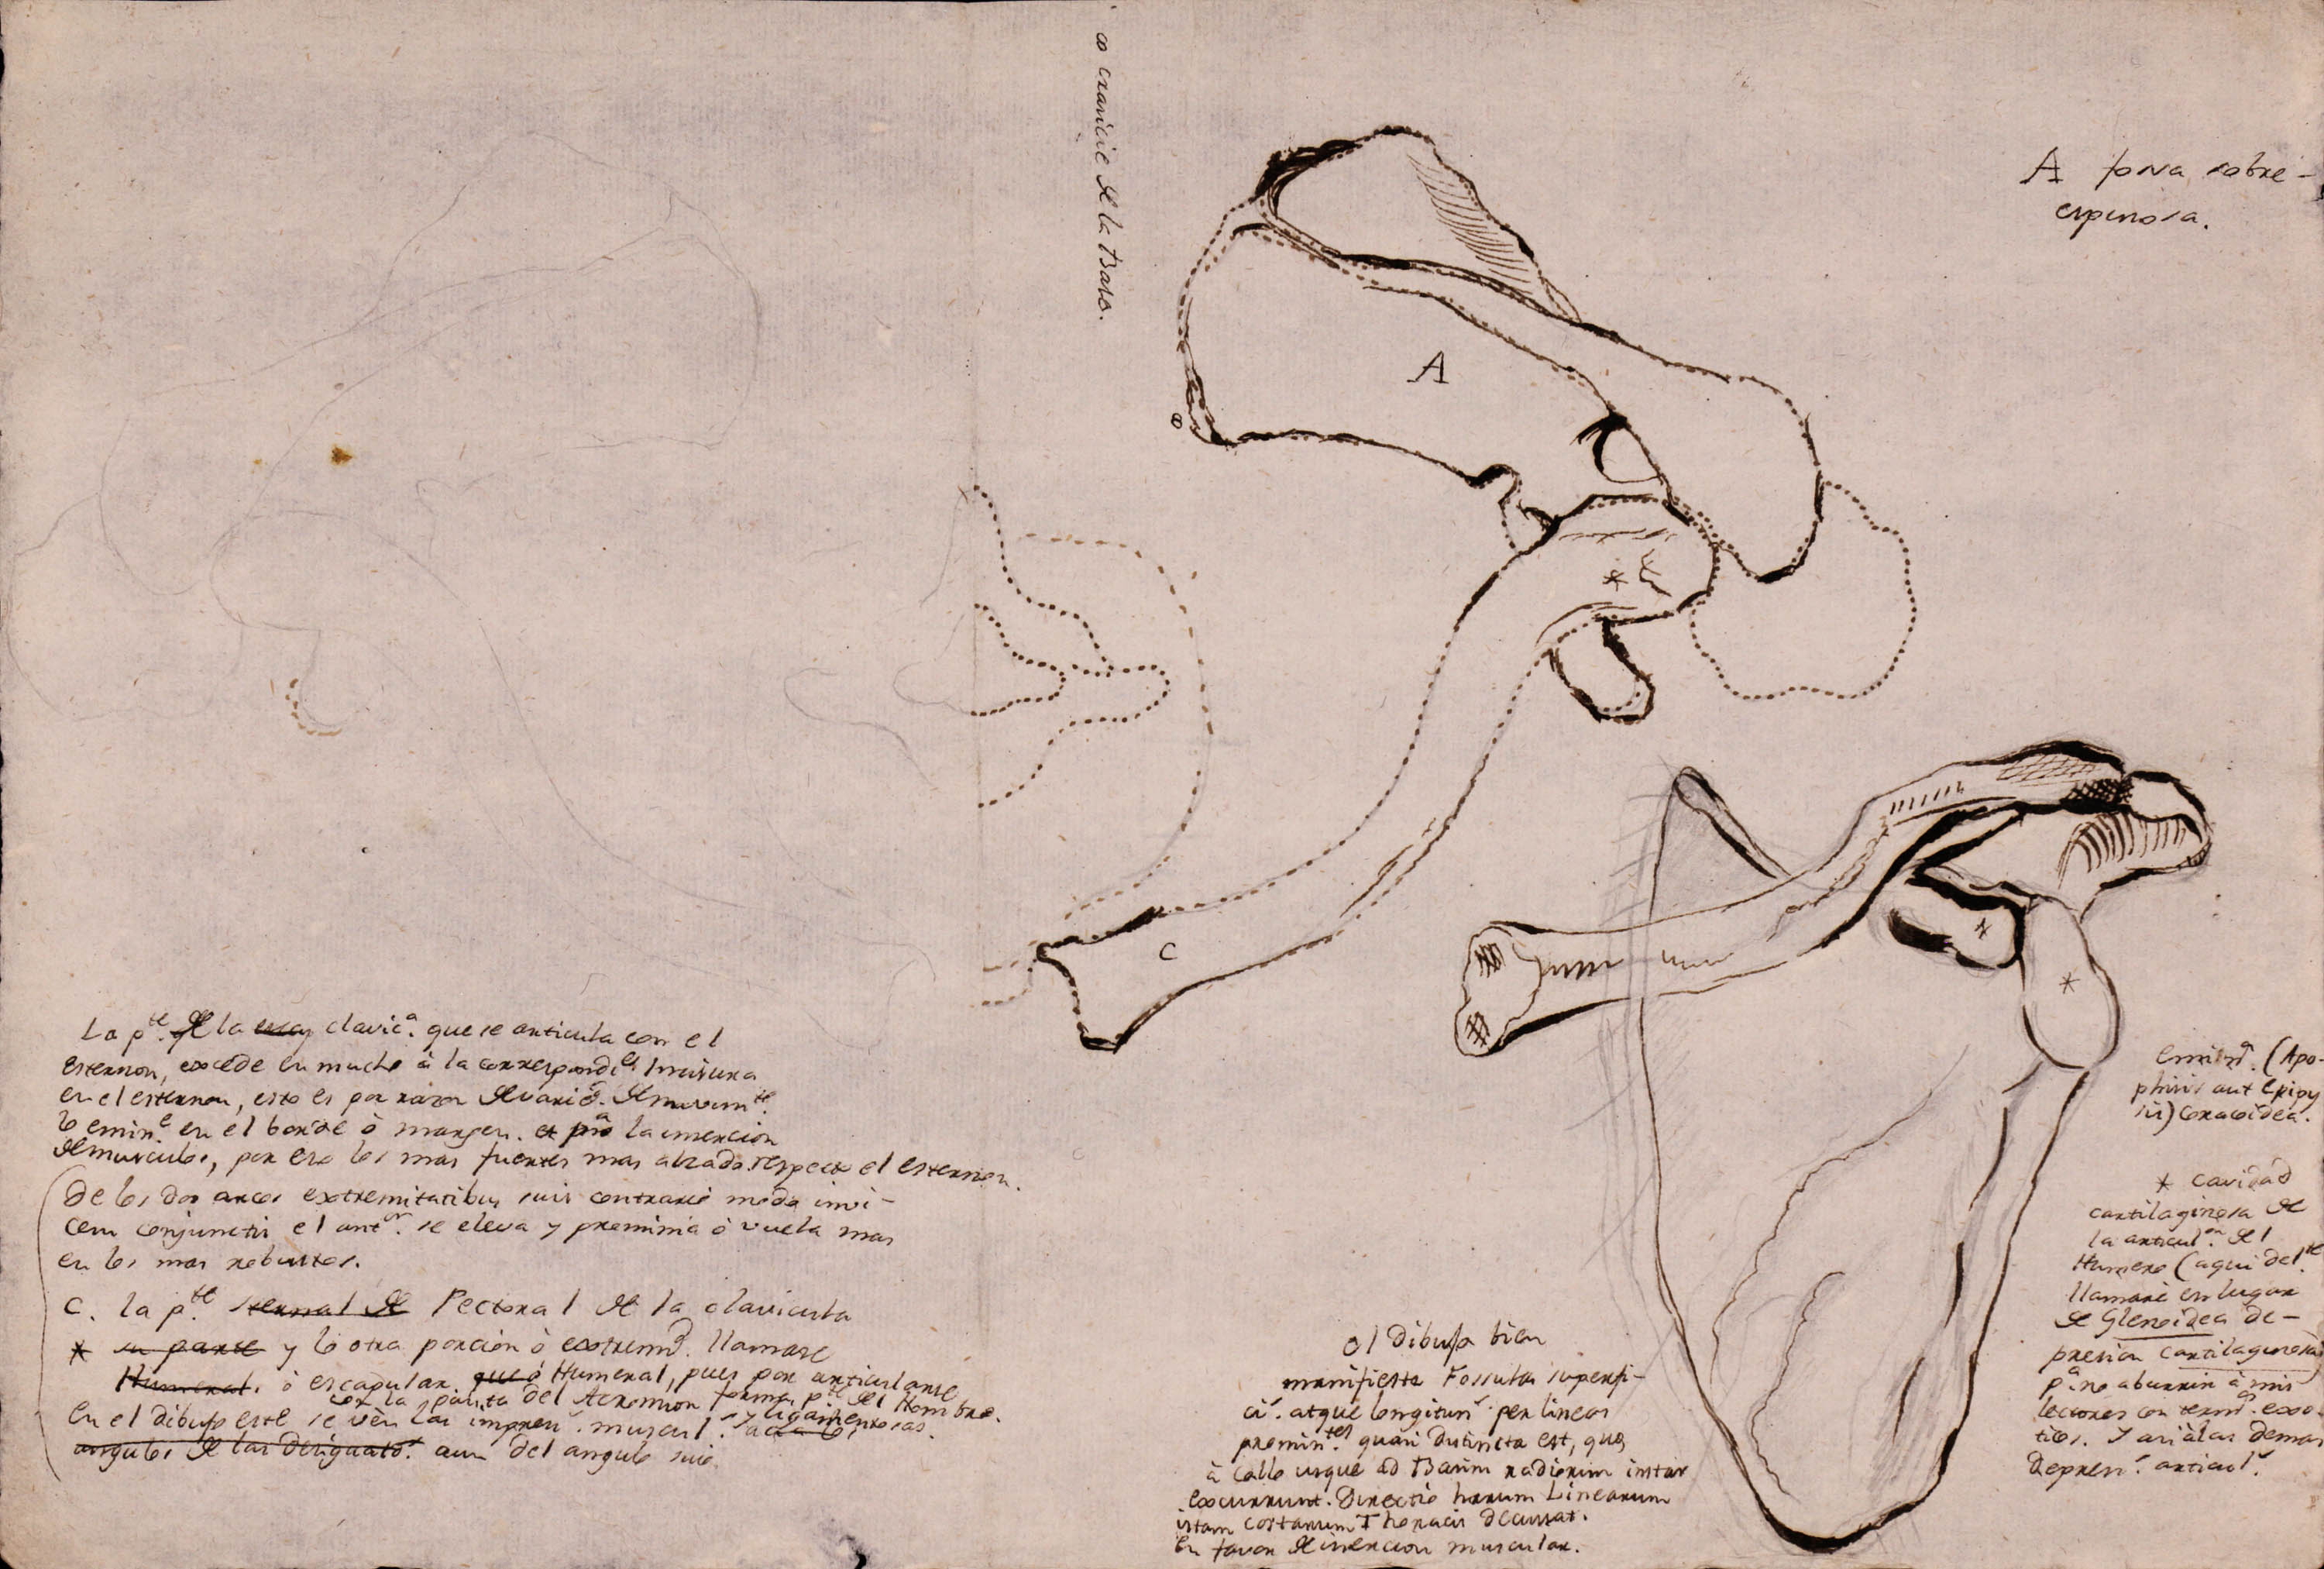 ∞ cranicie de la Baso.
A fosa sobre-
espinosa.
A
∞
*
C
*
*
La p.te de la clavic.a que se articula con el
esternon, excede en mucho à la correspond.e incisura
en el esternon, esto es por razon de varied. de movim.te
lo emin.e en el borde ò margen. la insercion
de musculos, por eso los mas fuertes mas alzado respecto el esternon.
De los dos arcos extremitatibus suis contrario modo invi-
cem conjunctis el ant.or se eleva y preminia ò vuela mas
en los mas robustos.
C. la p.te sternal de Pectoral de la clavicula
* su parte y lo otra porcion ò extremd. llamase
Humeral. ò escapular que ò Humeral, pues por articularse
con la punta del Acromion forma p.te del Hombro.
En el dibujo este se vèn las impresi. muscul.s y ligamentosas.
angulos de las designato. aun del angulo
el Dibujo bien
manifiesta Fossula superfi-
ci. atque longitun. per lineas
premin.tes quasi distincta est, que
à collo usque ad Basim radiorum instar
excurrunt. Directio harum Linearum
istam costarum Thoracis decussat.
En favor de insercion muscular.
emind. (Apo-
phisis aut Epipy
sis) coracoidea.
* cavidad
cartilaginosa de
la articul.on del
Humero (aqui del.te
llamarè en lugar
de Glenoidea de-
presion cartilaginosa)
p.a no aburrir à mis
lectores con term.os exo-
ticos. Y asi à las demas
depresi. articul.